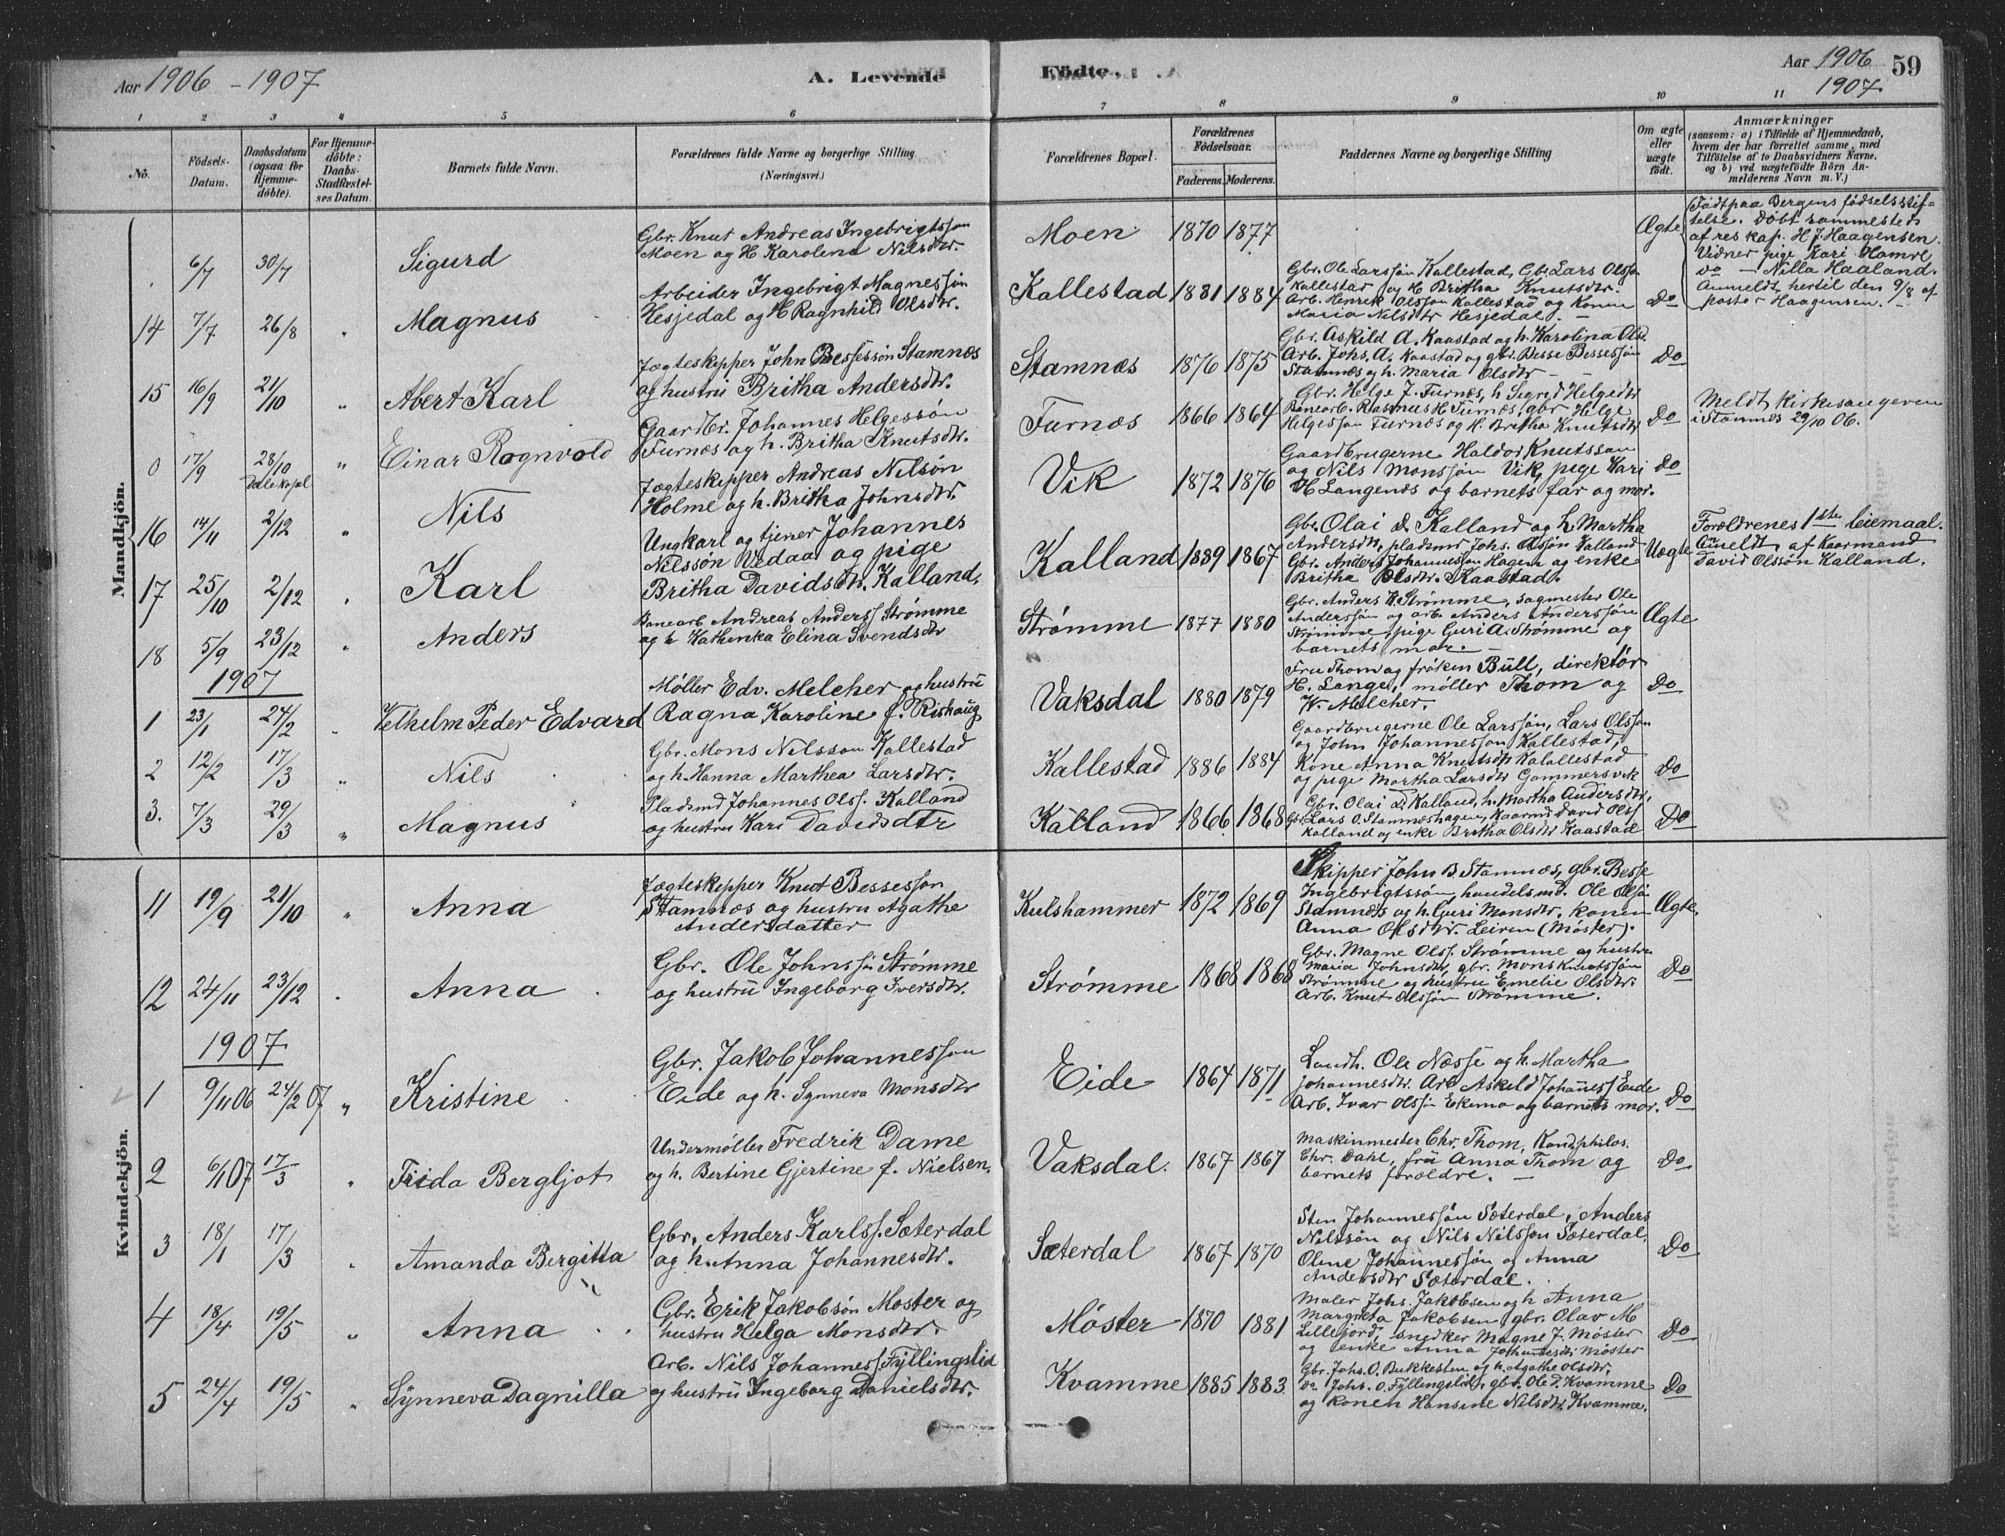 Aar 1906 - 1907
A. Levende
Födte.
Aar 1906
1907
59
1 2 3 4 5 6 7 8 9 10 11
No.
Födsels-Datum.
Daabsdatum (ogsaa for Hjemme-döbte).
For Hjemme-döbte: Daabs-Stadfæstel-ses Datum.
Barnets fulde Navn.
Forældrenes fulde Navne og borgerlige Stilling (Næringsvei.)
Forældrenes Bopæl.
Forældrenes Födselsaar.
Faderens. Moderens.
Faddernes Navne og borgerlige Stilling
Om ægte eller uægte födt.
Anmærkninger
(saasom: a) i Tilfælde af Hjemmedaab, hvem der har forrettet samme, med Tilföielse af to Daabsvidners Navne, og b) ved uægtefödte Börn An-melderens Navn m. V.)
Mandkjön.
. 6/7 30/7 Sigurd
Gbr. Knut Andreas Ingebrigtsson
Moen og H Karolina Nilsdtr.
Moen 1870 1877 Ægte
Født paa Bergens fødselsstif-
telse. Døbt sammesteds
af res kap. H J. Haagensen.
Vidner pige Kari Hamre
do — Nilla Haaland.
Anmeldt hertil den 9/8 af
pastor Haagensen.
14 7/7 26/8 " Magnus
Arbeider Ingebrigt Magnessøn
Hesjedal og H Ragnhild Olsdtr.
Kallestad 1881 1884
Gbr. Ole Larssøn Kallestad, Gb. Lars Olss
Kallestad og H Britha Knutsdtr.
Arb. Henrik Olsson Kallestad og Konen
Maria Nilsdtr Hesjedal. —
Do
15 16/9 21/10 " Abert Karl
Jægteskipper John Bessessøn Stamnæs
og hustru Britha Andersdtr.
Stamnæs 1876 1875
Gbr. Askild A. Kaastad og h. Karolina Ols.
Arb. Johs. A. Kaastad og gbr. Besse Bessesjøn
Stamnæs og h. Maria Olsdtr — -
Do
0 17/9 28/10 Dale kapl " Einar Ragnvald
Gaardbr. Johannes Helgessøn
Furnæs og h. Britha Knutsdtr.
Furnæs 1866 1864
Gbr. Helge J. Furnæs, h Sigrid Helgedtr
Banearb. Rasmus H Furnæs, gbr Helge
Helgesson Furnæs og H. Britha Knutsdtr
Do
Meldt kirkesangeren
i Stamnes 29/10 06.
16 14/11 2/12 " Nils
Jægteskipper Andreas Nilsøn
Holme og h. Britha Johnsdtr.
Vik 1872 1876
Gaardbrugerne Haldor Knutsson
og Nils Monssøn Vik, pige Kari
H Langenæs og barnets far og mor.
Do
17 25/10 2/12 " Karl
Ungkarl og tjener Johannes
Nilssøn Vedaa og pige
Britha Davidsdtr. Kalland.
Kalland 1889 1867
Gbr. Olai D. Kalland og h. Martha
Andersdtr, pladsmd Johs. Olssøn Kalland
Gbr. Anders Johannessøn Hagen og enke
Britha Olsdtr. Kaastad.
Uægte
Forældrenes 1ste leiemaal.
Anmeldt af Kaarmand
David Olssøn Kalland.
18 5/9 23/12 " Anders
Banearb Andreas Anderss Strømme
og h Kathinka Elina Svendsdtr
Strømme 1877 1880
Gbr. Anders K. Strømme, sagmester Ole
Anderssøn og arb Anders Anderssøn
Strømme, pige Guri A. Strømme og
barnets mor. —
Ægte
1907
1 23/1 24/2 " Vilhelm Peder Edvard
Møller Edv. Melcher og hustru
Ragna Karoline f. Riskaug
Vaksdal 1880 1879
Fru Thom og frøken Bull, direktør
H. Lange, møller Thom og
W. Melcher.
Do
2 12/2 17/3 " Nils
Gbr. Mons Nilsson Kallestad
og h. Hanna Marthea Larsdtr.
Kallestad 1886 1884
Gaardbrugerne Ole Larssøn, Lars Olsson
og John Johannesson Kallestad,
Kone Anna Knutsdtr Kalallestad
og pige Martha Larsdtr Gammersvik
Do
3. 7/3 29/3 " Magnus
Pladsmd Johannes Olss. Kalland
og hustru Kari Davidsdtr
Kalland 1866 1868
Gbr. Olai D. Kalland, h. Martha Andersdtr,
Gbr. Lars O. Stamnæshagen, Kaarmd David Olss
Kalland og enke Britha Olsdtr Kaastad
Do
Kvindekjön.
11 19/9 21/10 " Anna
Jægteskipper Knut Bessesson
Stamnæs og hustru Agathe
Andersdatter
Kulshammer 1872 1869
Skipper John B Stamnæs, gbr. Besse
Ingebrigtssøn, handelsmd. Ole Olsøn
Stamnæs og h. Guri Monsdtr. konen
Anna Olsdtr. Leiren (Møster).
Ægte.
12 24/11 23/12 " Anna
Gbr. Ole Johnssøn Strømme
og hustru Ingeborg Iversdtr.
Strømme 1868 1868
Gbr. Magne Olss. Strømme og hustru
Maria Johnsdtr, gbr. Mons Knutssøn
Strømme og hustru Emelie Olsdtr.
Arb. Knut Olssøn Strømme.
Do
1907
1 9/11 06 24/2 07 " Kristine
Gbr. Jakob Johannesson
Eide og h. Synneva Monsdtr
Eide 1864 1871
Landh. Ole Næsse og h. Martha
Johannesdtr. Arb Askild Johaness Eide
Arb. Ivar Olssøn Ekemo og barnets mor.
Do
2 6/1 07 17/3 " Frida Bergljot
Undermøller Fredrik Dame
og h. Bertine Gjertine f. Nielsen.
Vaksdal. 1867 1867
Maskinmester Chr. Thom, Kand. philos.
Chr. Dahl, fru Anna Thom og
barnets forældre. —
Do
3 18/1 17/3 " Amanda Bergitta
Gbr. Anders Karlss. Sæterdal
og h. Anna Johannesdtr.
Sæterdal 1867 1870
Sten Johannessøn Sæterdal, Anders
Nilssøn og Nils Nilsson Sæterdal,
Oline Johannessøn og Anna
Andersdtr Sæterdal.
Do
4 18/4 19/5 " Anna
Gbr. Erik Jakobsøn Moster og
hustru Helga Monsdtr.
Møster 1870 1881
Maler Johs. Jakobsen og h Anna
Margreta Jakobsen gbr. Olav M
Lillefjord, snedker Magne J. Møster
og enke Anna Johannesdtr Møster
Do
5 24/4 19/5 " Synneva Dagnilla
Arb. Nils Johanness. Fyllingslid
og hustru Ingeborg Danielsdtr.
Kvamme 1885 1883
Gbr. Johs. O. Bukkesten og h. Agathe Olsdtr.
do Johs. O. Fyllingslid, gbr. Ole D. Kvamme
og konen Hansine Nilsdtr Kvamme.
Do